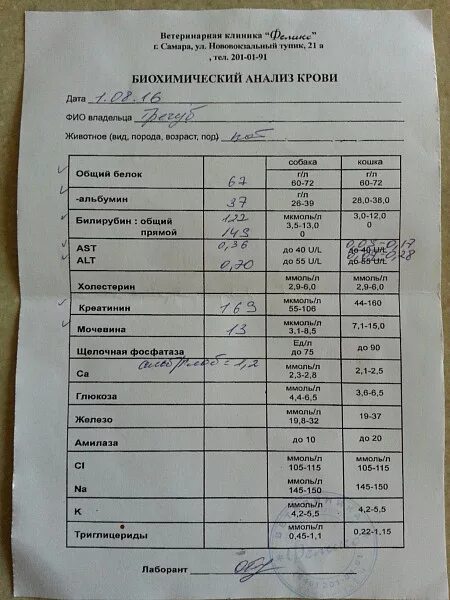 Ветеринарная клиника "Феликс"
г. Самара, ул. Нововокзальный тупик, 21 а
, тел. 201-01-91
БИОХИМИЧЕСКИЙ АНАЛИЗ КРОВИ
Дата 1.08.16
ФИО владельца
Животное (вид, порода, возраст, пол) кот
собака кошка
Общий белок 67 г/л 60-72 г/л 60-72
-альбумин 37 г/л 26-39 28,0-38,0
Билирубин : общий 122 мкмоль/л 3,5-13,0 3,0-12,0
прямой 149 0 0
AST 0,36 до 40 U/L до 40 U/L 0,03-0,17
ALT 0,70 до 55 U/L до 55 U/L
Холестерин ммоль/л 2,9-6,0 ммоль/л 2,9-6,0
Креатинин 169 мкмоль/л 55-106 44-160
Мочевина 13 мкмоль/л 3,1-8,5 7,1-15,0
Щелочная фосфатаза Ед/л до 75 до 90
Ca = 1,2 ммоль/л 2,3-2,8 ммоль/л 2,2-2,5
Глюкоза ммоль/л 4,4-6,5 3,6-6,5
Железо ммоль/л 19,8-32 19-37
Амилаза до 10 до 20
Cl ммоль/л 105-115 ммоль/л 105-115
Na ммоль/л 145-150 145-150
K ммоль/л 4,2-5,5 4,2-5,5
Триглицериды ммоль/л 0,45-1,1 0,22-1,15
Лаборант